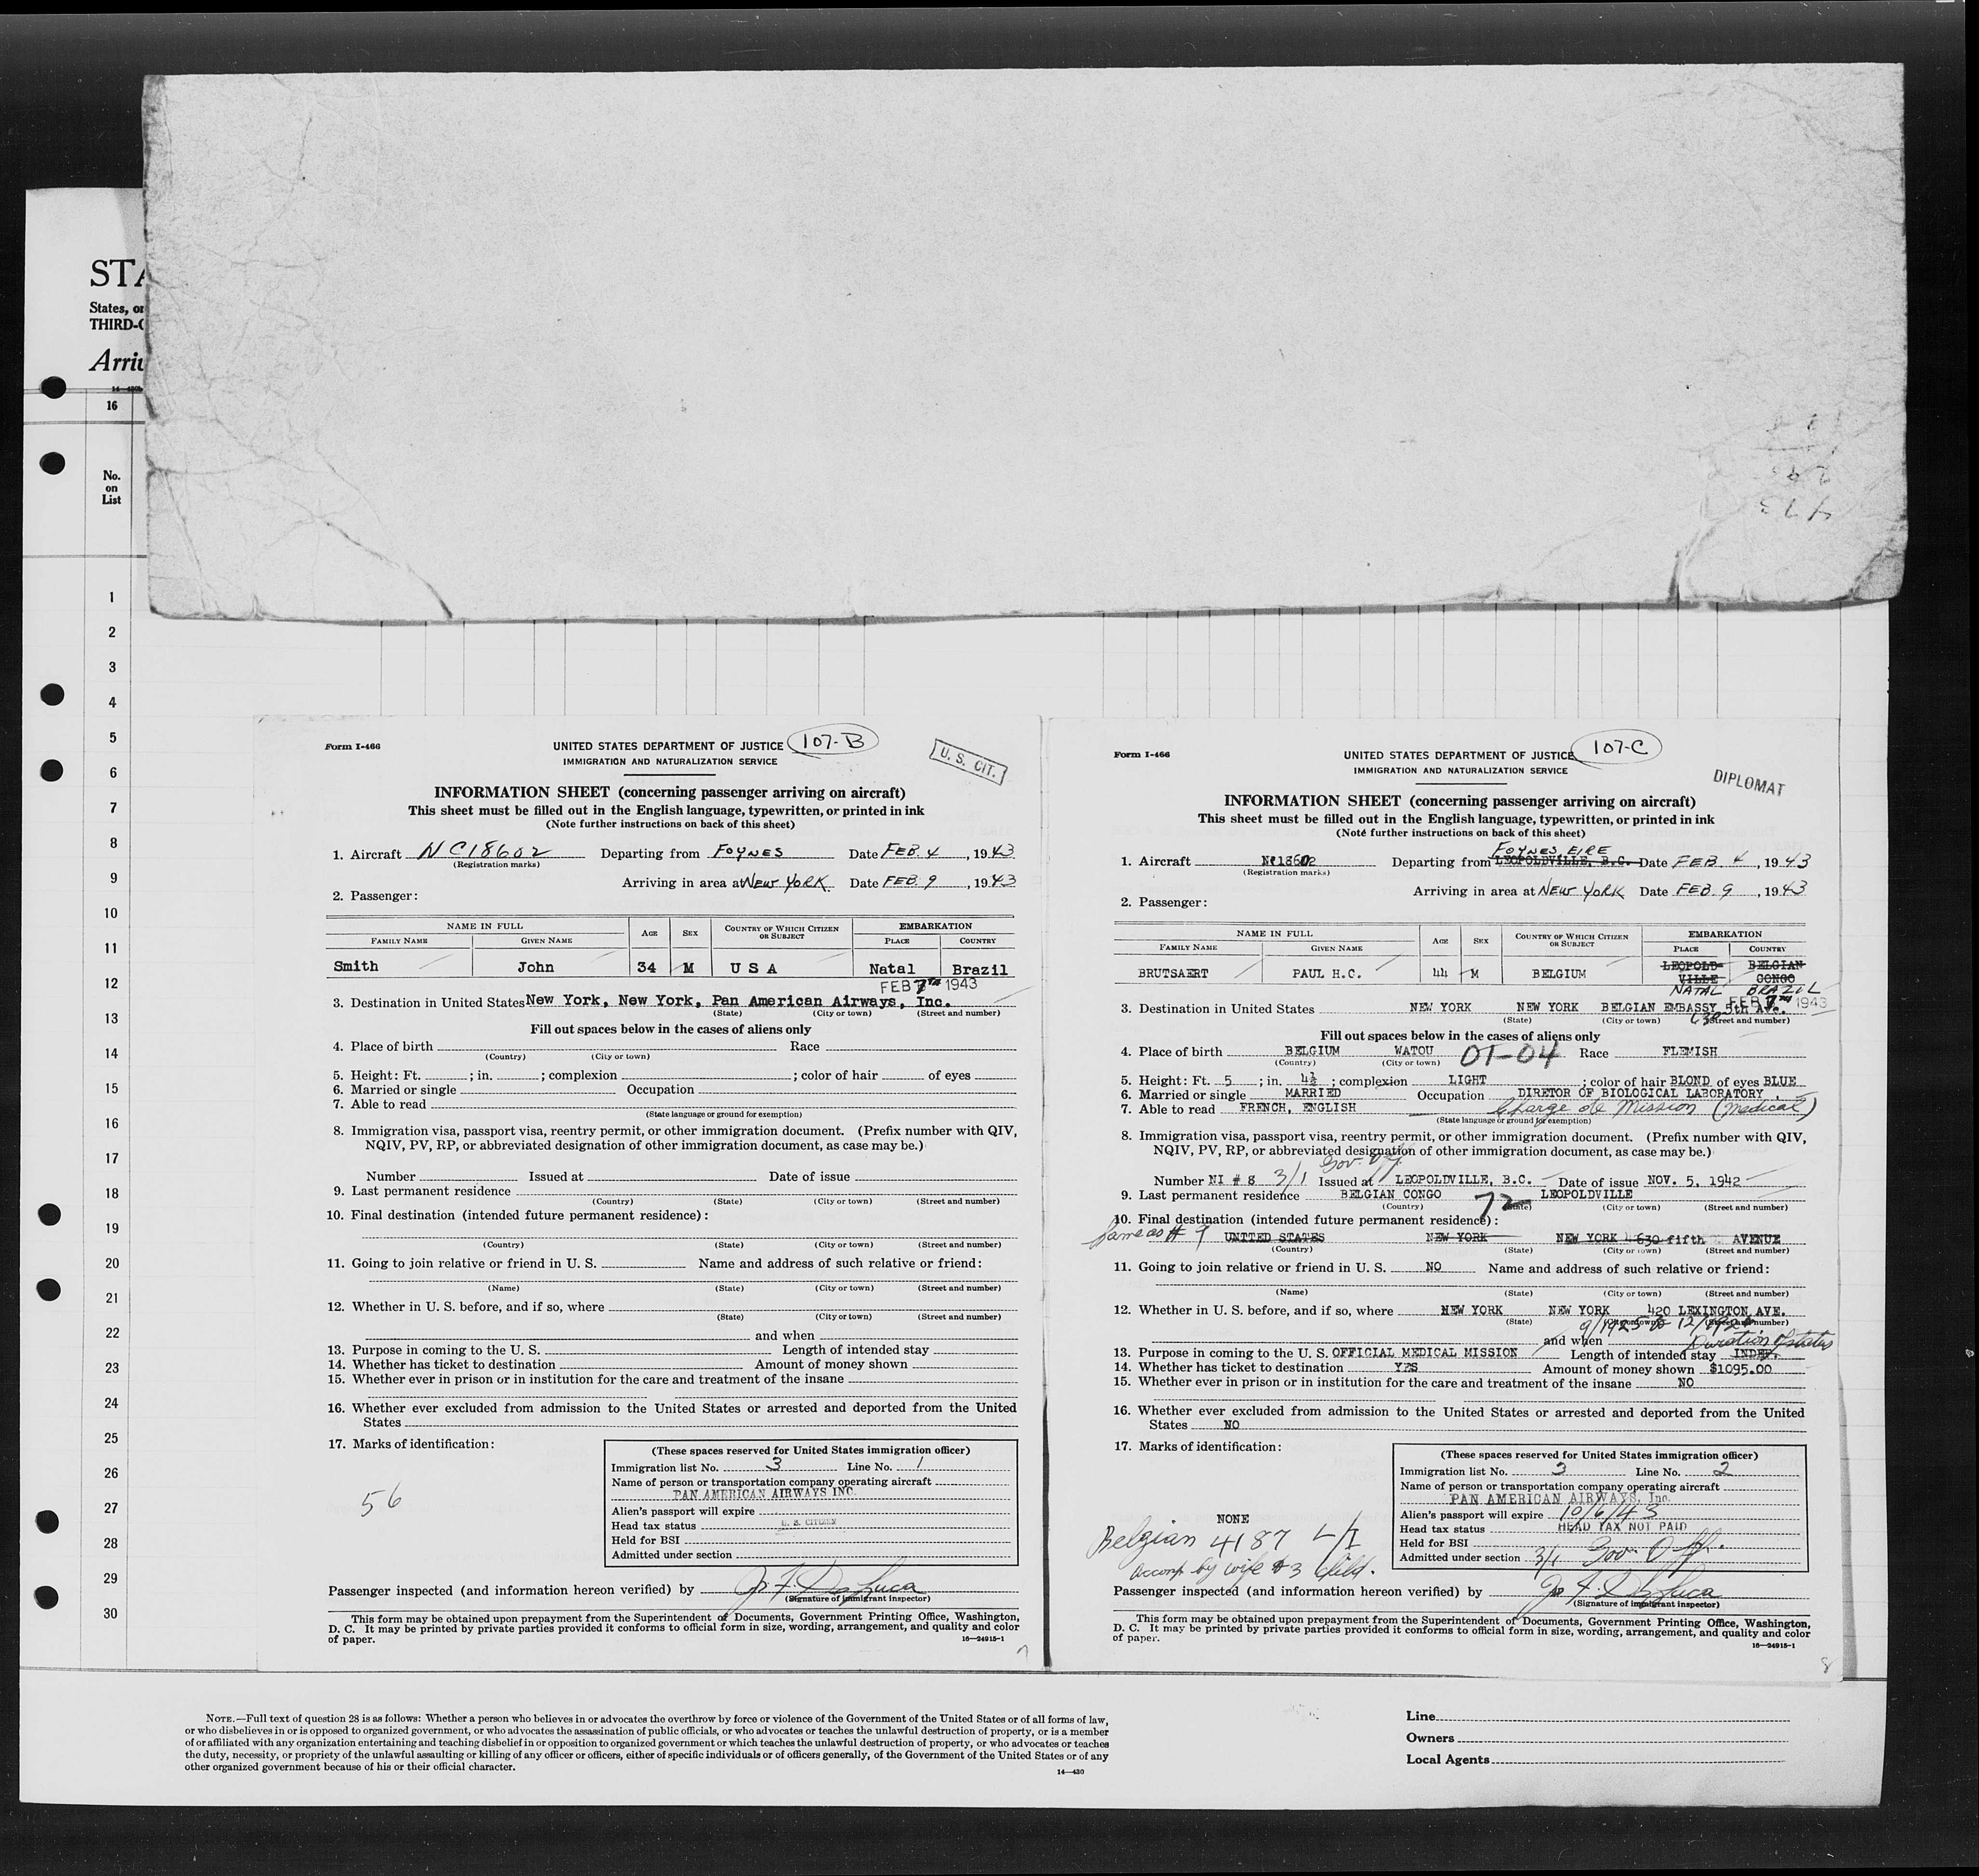 STA
States, or
THIRD-C
Arriv
16
No.
on
List
1
2
3
4
5
6
7
8
9
10
11
12
13
14
15
16
17
18
19
20
21
22
23
24
25
26
27
28
29
30
Form I-466
UNITED STATES DEPARTMENT OF JUSTICE 107-B
IMMIGRATION AND NATURALIZATION SERVICE
U. S. CIT.
INFORMATION SHEET (concerning passenger arriving on aircraft)
This sheet must be filled out in the English language, typewritten, or printed in ink
(Note further instructions on back of this sheet)
1. Aircraft NC18602 Departing from FOYNES Date FEB. 4, 1943
(Registration marks)
Arriving in area at NEW YORK Date FEB. 9, 1943
2. Passenger:
NAME IN FULL AGE SEX COUNTRY OF WHICH CITIZEN OR SUBJECT EMBARKATION
FAMILY NAME GIVEN NAME PLACE COUNTRY
Smith John 34 M U S A Natal Brazil
FEB 7TH 1943
3. Destination in United States New York, New York, Pan American Airways, Inc.
(State) (City or town) (Street and number)
Fill out spaces below in the cases of aliens only
4. Place of birth Race
(Country) (City or town)
5. Height: Ft. ; in. ; complexion ; color of hair of eyes
6. Married or single Occupation
7. Able to read
(State language or ground for exemption)
8. Immigration visa, passport visa, reentry permit, or other immigration document. (Prefix number with QIV,
NQIV, PV, RP, or abbreviated designation of other immigration document, as case may be.)
Number Issued at Date of issue
9. Last permanent residence
(Country) (State) (City or town) (Street and number)
10. Final destination (intended future permanent residence):
(Country) (State) (City or town) (Street and number)
11. Going to join relative or friend in U. S. Name and address of such relative or friend:
(Name) (State) (City or town) (Street and number)
12. Whether in U. S. before, and if so, where
(State) (City or town) (Street and number)
and when
13. Purpose in coming to the U. S. Length of intended stay
14. Whether has ticket to destination Amount of money shown
15. Whether ever in prison or in institution for the care and treatment of the insane
16. Whether ever excluded from admission to the United States or arrested and deported from the United
States
17. Marks of identification:
56
(These spaces reserved for United States immigration officer)
Immigration list No. 3 Line No. 1
Name of person or transportation company operating aircraft
PAN AMERICAN AIRWAYS INC.
Alien's passport will expire
Head tax status U. S. CITIZEN
Held for BSI
Admitted under section
Passenger inspected (and information hereon verified) by
(Signature of immigrant inspector)
This form may be obtained upon prepayment from the Superintendent of Documents, Government Printing Office, Washington,
D. C. It may be printed by private parties provided it conforms to official form in size, wording, arrangement, and quality and color
of paper. 16—24915-1
Form I-466
UNITED STATES DEPARTMENT OF JUSTICE 107-C
IMMIGRATION AND NATURALIZATION SERVICE
DIPLOMAT
INFORMATION SHEET (concerning passenger arriving on aircraft)
This sheet must be filled out in the English language, typewritten, or printed in ink
(Note further instructions on back of this sheet)
FOYNES EIRE
1. Aircraft NC18602 Departing from LEOPOLDVILLE, B.C. Date FEB. 4, 1943
(Registration marks)
Arriving in area at NEW YORK Date FEB. 9, 1943
2. Passenger:
NAME IN FULL AGE SEX COUNTRY OF WHICH CITIZEN OR SUBJECT EMBARKATION
FAMILY NAME GIVEN NAME PLACE COUNTRY
BRUTSAERT PAUL H.C. 44 M BELGIUM LEOPOLD- VILLE BELGIAN CONGO
NATAL BRAZIL
FEB 7TH 1943
3. Destination in United States NEW YORK NEW YORK BELGIAN EMBASSY 5th Ave.
(State) (City or town) 630 (Street and number)
Fill out spaces below in the cases of aliens only
4. Place of birth BELGIUM WATOU 01-04 Race FLEMISH
(Country) (City or town)
5. Height: Ft. 5 ; in. 4½ ; complexion LIGHT ; color of hair BLOND of eyes BLUE
6. Married or single MARRIED Occupation DIRETOR OF BIOLOGICAL LABORATORY
7. Able to read FRENCH, ENGLISH Charge de Mission (Medical)
(State language or ground for exemption)
8. Immigration visa, passport visa, reentry permit, or other immigration document. (Prefix number with QIV,
NQIV, PV, RP, or abbreviated designation of other immigration document, as case may be.)
Gov. Off.
Number NI # 8 3/1 Issued at LEOPOLDVILLE, B.C. Date of issue NOV. 5, 1942
9. Last permanent residence BELGIAN CONGO 72 LEOPOLDVILLE
(Country) (State) (City or town) (Street and number)
10. Final destination (intended future permanent residence):
Same as # 9 UNITED STATES NEW YORK NEW YORK 630 fifth AVENUE
(Country) (State) (City or town) (Street and number)
11. Going to join relative or friend in U. S. NO Name and address of such relative or friend:
(Name) (State) (City or town) (Street and number)
12. Whether in U. S. before, and if so, where NEW YORK NEW YORK 420 LEXINGTON AVE.
(State) (City or town) (Street and number)
and when 9/1925 to
Duration of status
13. Purpose in coming to the U. S. OFFICIAL MEDICAL MISSION Length of intended stay INDEF.
14. Whether has ticket to destination YES Amount of money shown $1095.00
15. Whether ever in prison or in institution for the care and treatment of the insane NO
16. Whether ever excluded from admission to the United States or arrested and deported from the United
States NO
17. Marks of identification:
NONE
Belgian 4187 L/I
accomp by wife & 3 child.
(These spaces reserved for United States immigration officer)
Immigration list No. 3 Line No. 2
Name of person or transportation company operating aircraft
PAN AMERICAN AIRWAYS, Inc.
Alien's passport will expire 10/6/43
Head tax status HEAD TAX NOT PAID
Held for BSI
Admitted under section 3/1 Gov. Off.
Passenger inspected (and information hereon verified) by
(Signature of immigrant inspector)
This form may be obtained upon prepayment from the Superintendent of Documents, Government Printing Office, Washington,
D. C. It may be printed by private parties provided it conforms to official form in size, wording, arrangement, and quality and color
of paper. 16—24915-1
8
NOTE.—Full text of question 28 is as follows: Whether a person who believes in or advocates the overthrow by force or violence of the Government of the United States or of all forms of law,
or who disbelieves in or is opposed to organized government, or who advocates the assassination of public officials, or who advocates or teaches the unlawful destruction of property, or is a member
of or affiliated with any organization entertaining and teaching disbelief in or opposition to organized government or which teaches the unlawful destruction of property, or who advocates or teaches
the duty, necessity, or propriety of the unlawful assaulting or killing of any officer or officers, either of specific individuals or of officers generally, of the Government of the United States or of any
other organized government because of his or their official character.
14—430
Line
Owners
Local Agents